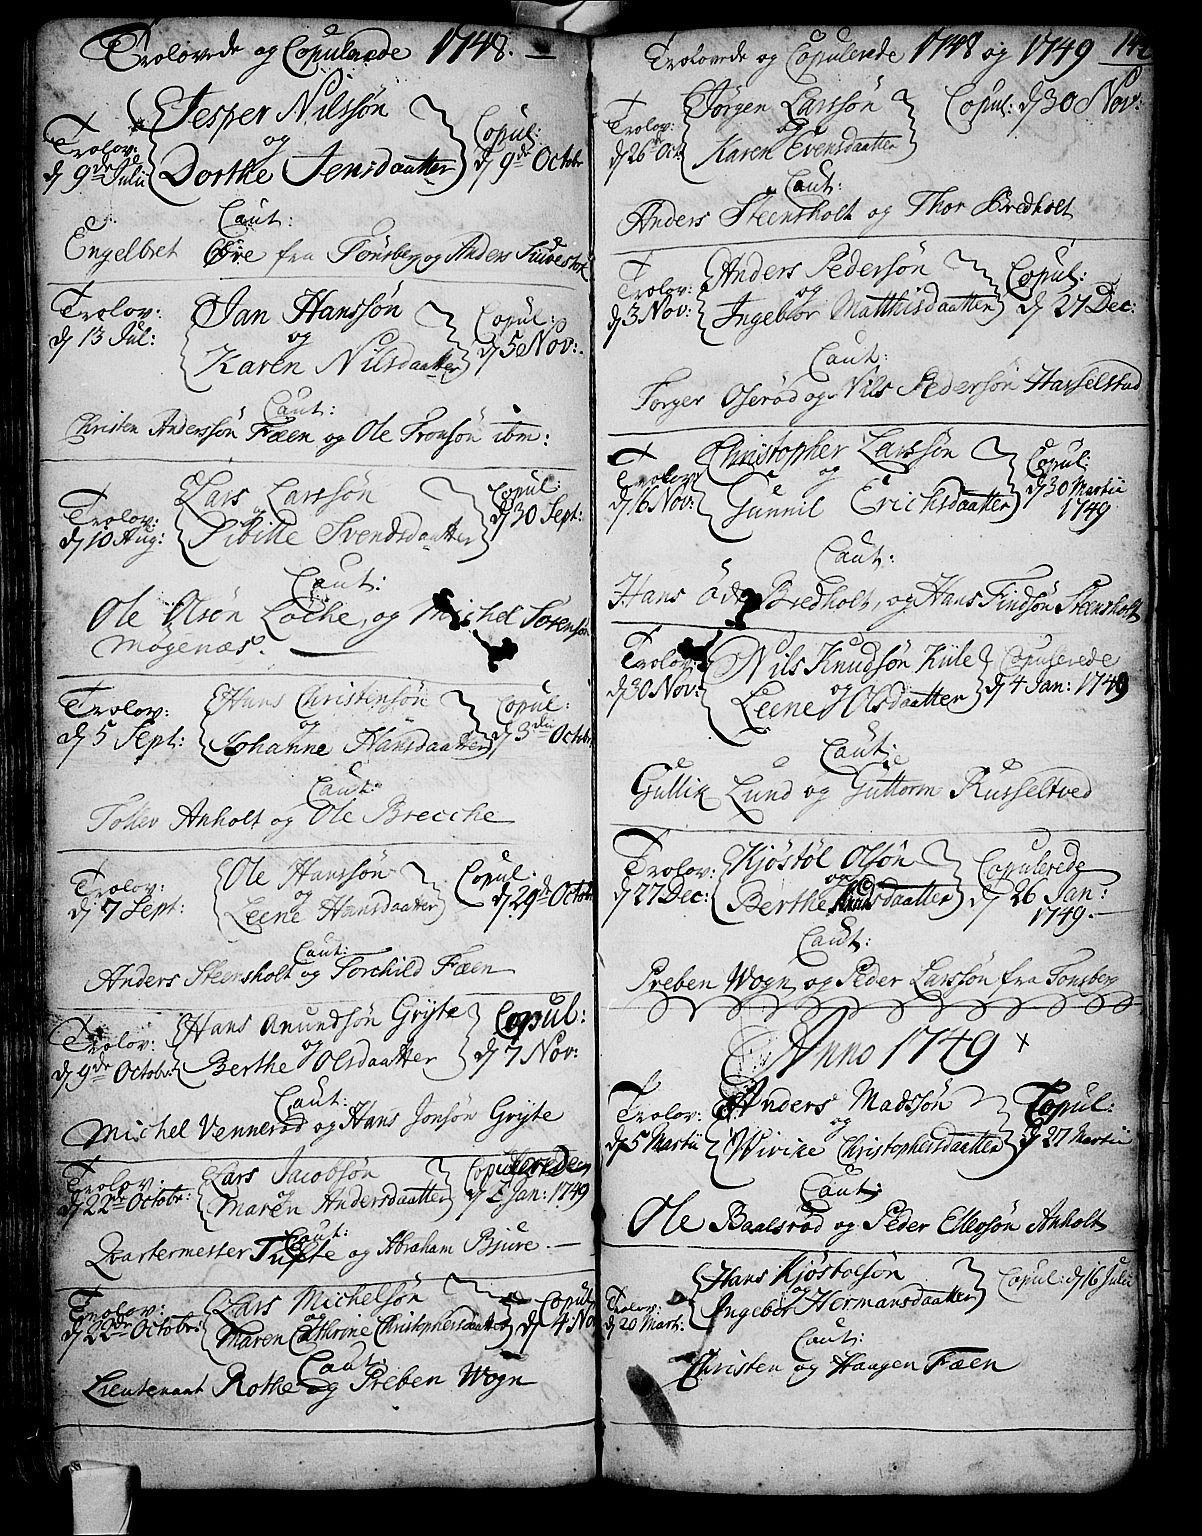 Trolovede og Copulerede 1748.
Trolov: d 9de Julii
Jesper Nilssøn
og
Dorthe Jensdaatter
Copul: d 9de Octobr
Caut:
Engelbret Øre fra Tønsberg og Anders
Trolov: d 13 Jul:
Jan Hanssøn
og
Karen Nilsdaatter
Copul: d 5 Nov:
Caut:
Christen Anderssøn Fæen og Ole Tronsøn ibm:
Trolov: d 10 Aug:
Lars Larssøn
og
Sibille Svendsdaatter
Copul: d 30 Sept:
Caut:
Ole Olsøn Løcke, og Michel Sørensøn
Mogenæs.
Trolov: d 5 Sept:
Hans Christensøn
og
Johanne Hansdaatter
Copul: d 3die Octobr
Caut:
Anholt og Ole Brecche
Trolov: d 7 Sept:
Ole Hanssøn
og
Leene Hansdaatter
Copul: d 29de Octobr
Caut:
Anders Steensholt og Torchild Fæen
Trolov: d 9de Octobr:
Hans Amundsøn Gryte
og
Berthe Olsdaatter
Copul: d 7 Nov:
Caut:
Michel Vennerød og Hans Jonsøn Gryte
Trolov: d 22de Octobr:
Lars Jacobsøn
og
Maren Andersdaatter
Copulerede d 2 Jan: 1749
Caut:
Qvartermester Tufte og Abraham Bjure.
Trolov: d 22de Octobr:
Lars Michelsøn
og
Maren Cathrine Christophersdaatter
Copul: d 4 Nov
Caut:
Lieutenant Rothe og Preben Wogn
Trolovede og Copulerede 1748 og 1749
Trolov: d 26de Oct
Jørgen Larssøn
og
Karen Evensdaatter
Copul: d 30 Nov:
Caut:
Anders Steensholt og Thor Bredholt
Trolov: d 3 Nov:
Anders Pedersøn
og
Ingeblor Matthisdaatter
Copul: d 27 Dec:
Caut:
Torger Oserød og Nils Pedersøn Hasselstad
Trolov: d 16 Nov:
Christopher Larssøn
og
Gunnil Erichsdaatter
Copul: d 30 Martii 1749
Caut:
Hans Øde Bredholt, og Hans Findsøn Steensholt
Trolov: d 30 Nov:
Nils Knudsøn Kiile
og
Leene Olsdaatter
Copulerede d 4 Jan: 1749
Caut:
Gullik Lund og Guttorm Russeltved
Trolov: d 27 Dec:
Kjøstøl Olsøn
og
Berthe Knudsdaatter
Copulerede d 26 Jan: 1749.
Caut:
Preben Wogn og Peder Larssøn fra Tønsberg
Anno 1749
Trolov: d 5 Martii
Anders Madssøn
og
Wivike Christophersdaatter
Copul: d 27 Martii
Caut:
Ole Baalsrød og Peder Ellefsøn Anholt
Trolov: d 20 Mart:
Hans Kjøstolsøn
og
Ingebor Hermansdaatter
Copul: d 16 Julii
Caut:
Christen og Haagen Fæen